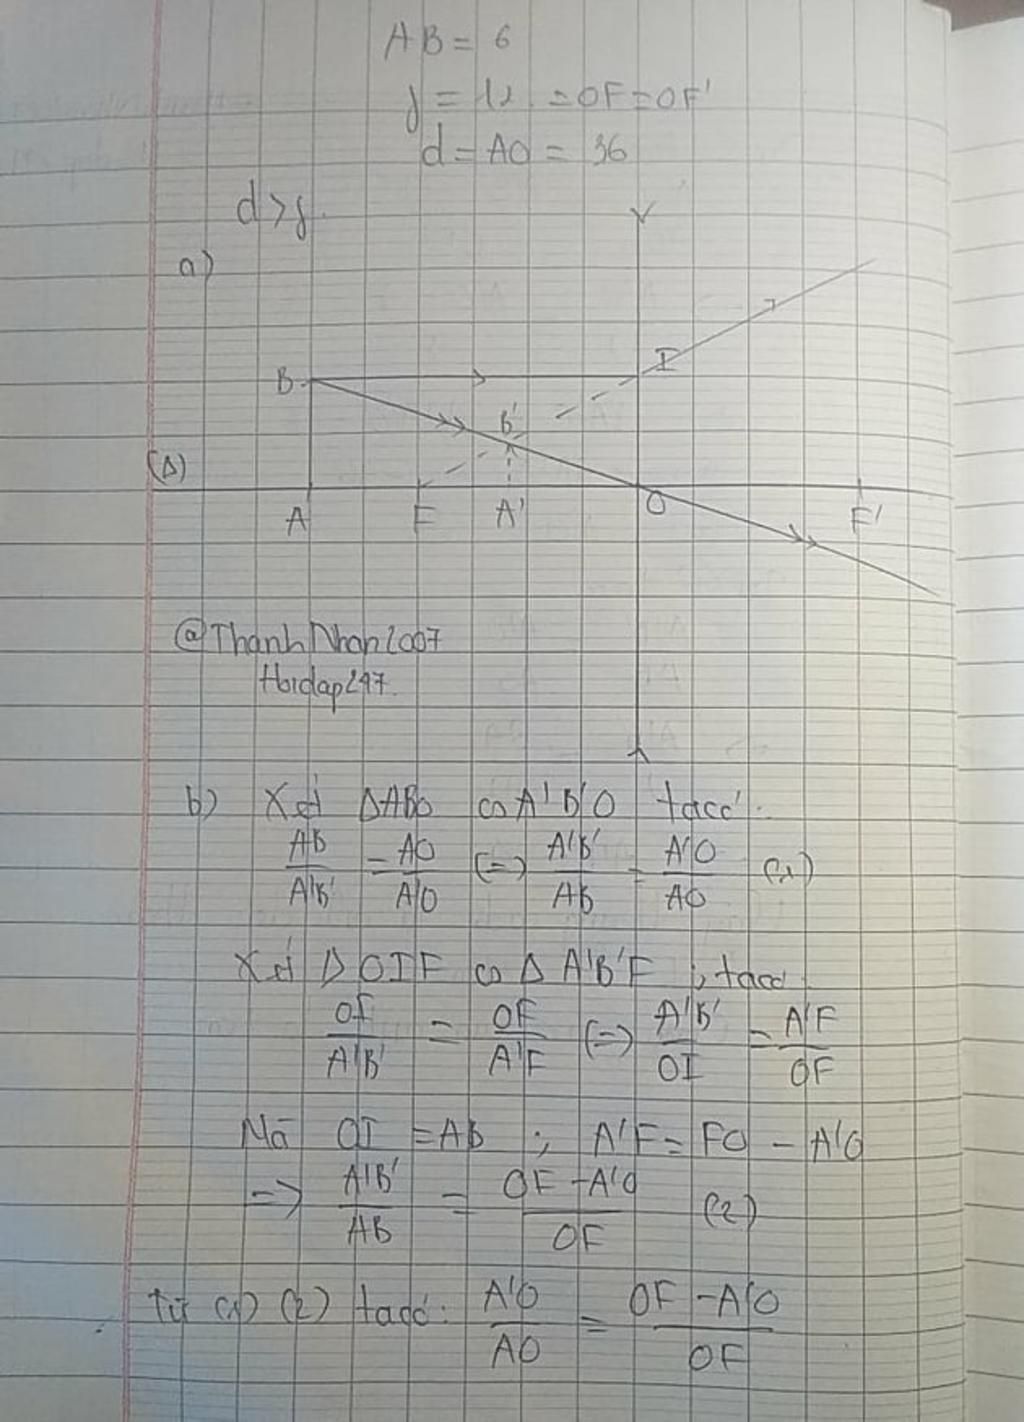 AB = 6
f = 12 = OF = OF'
d = AO = 36
d > f
a)
I
B
B'
(Δ)
A F A' O F'
@ThanhNhan2007
Hoidap247.
b) Xét ΔABO ∽ A'B'O ta có:
AB/A'B' = AO/A'O (=) A'B'/AB = A'O/AO (1)
Xét Δ OIF ∽ Δ A'B'F , ta có
OI/A'B' = OF/A'F (=) A'B'/OI = A'F/OF
Mà OI = AB ; A'F = FO - A'O
=> A'B'/AB = OF - A'O/OF (2)
Từ (1) (2) ta có: A'O/AO = OF - A'O/OF